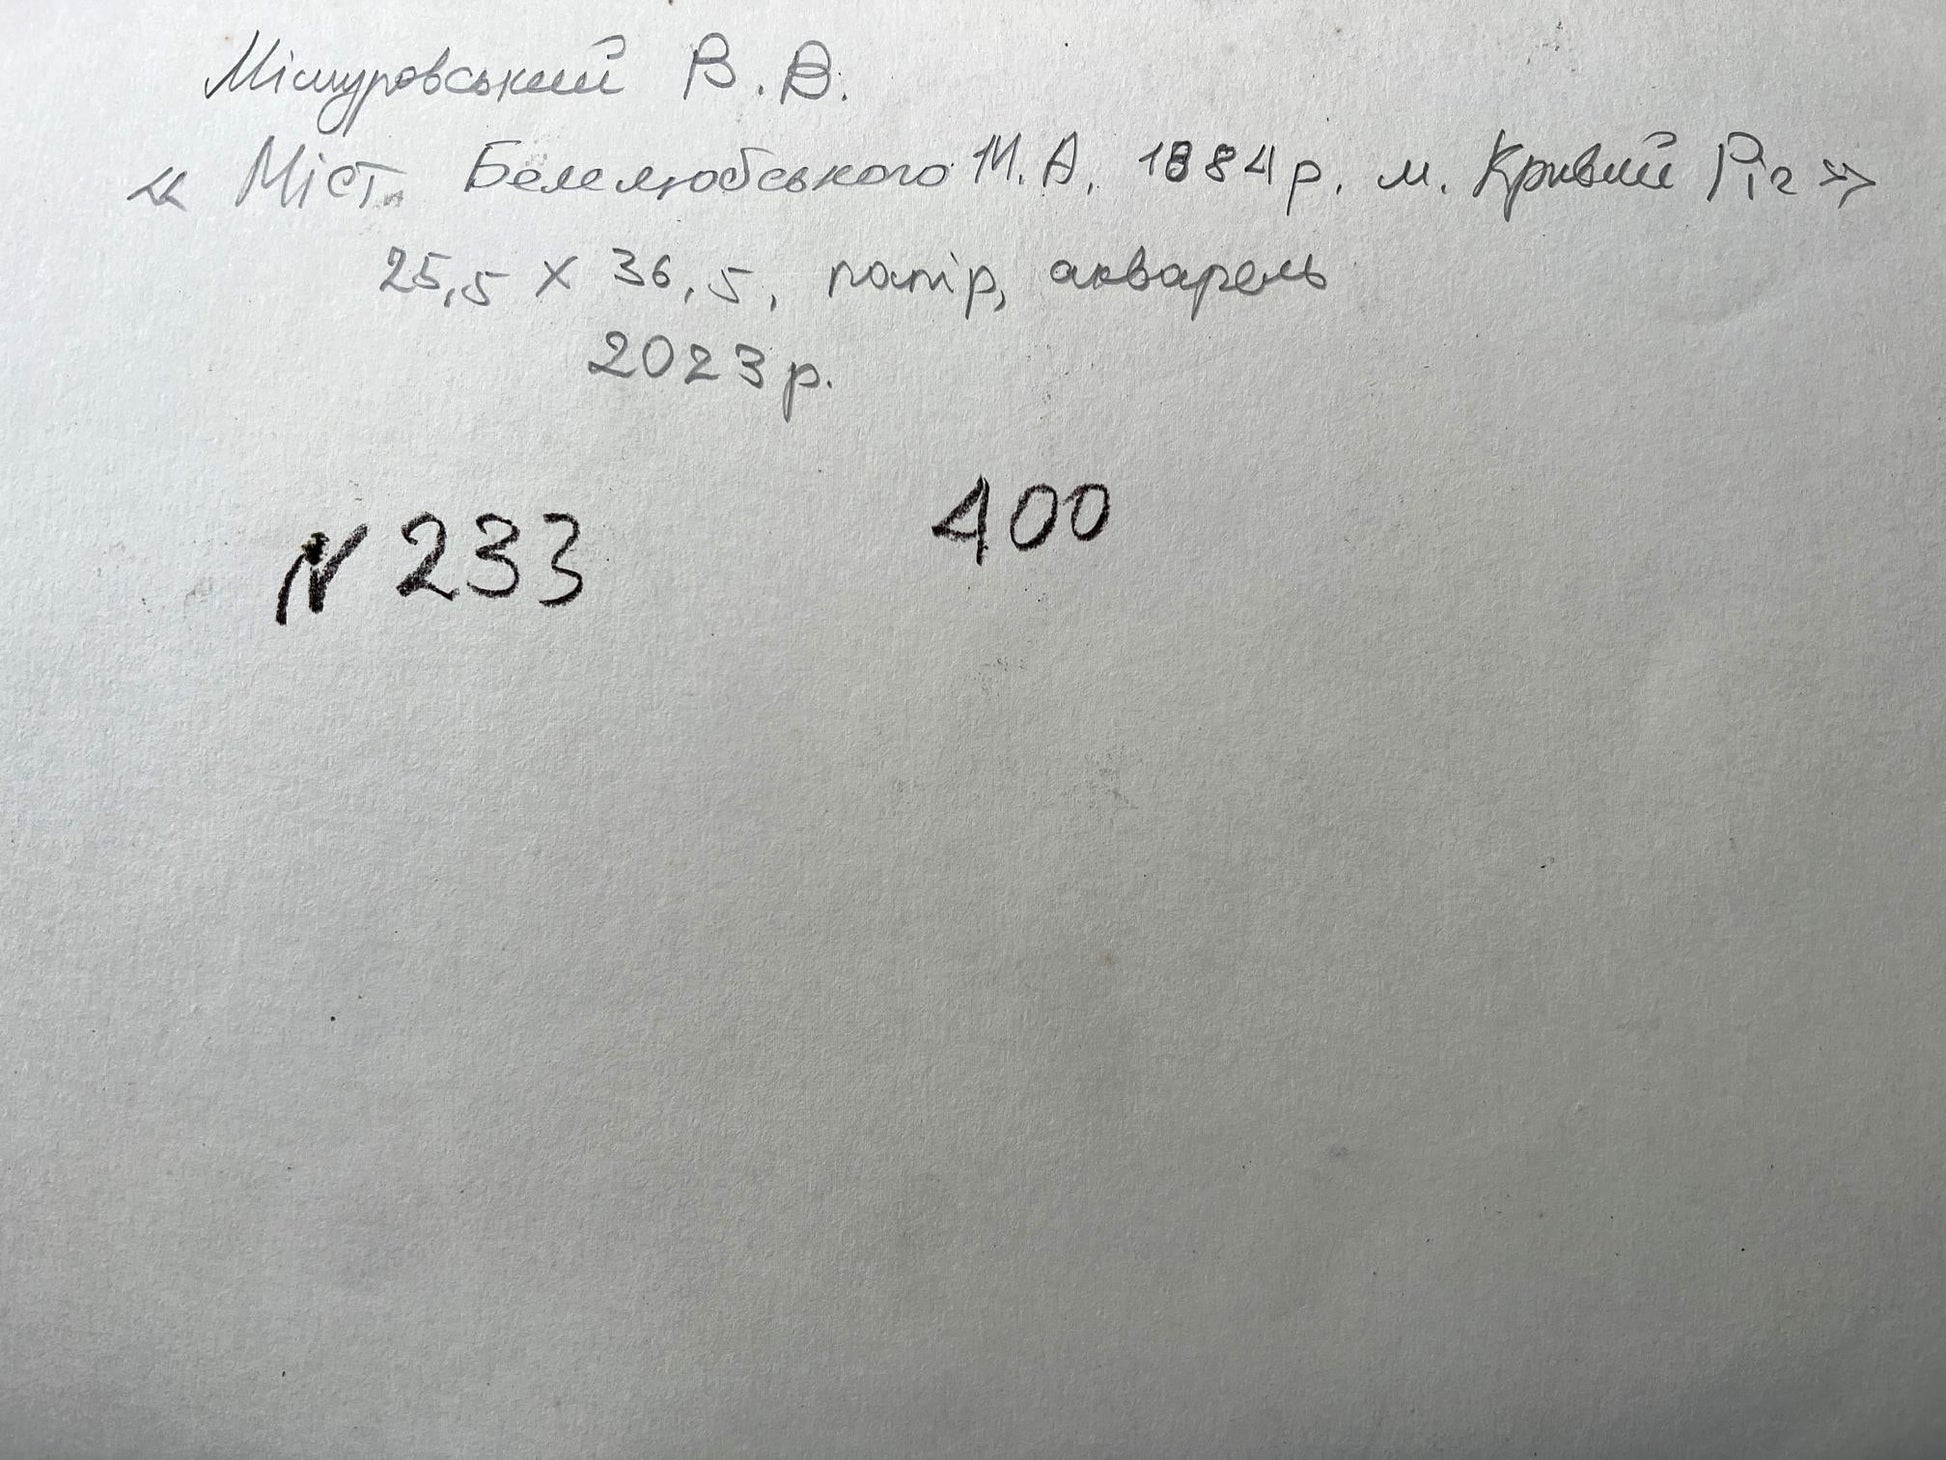 Мішуровський В.В.
« Міст. Белелюбського М.А, 1884р. м. Кривий Ріг»
25,5 х 36,5, папір, акварель
2023р.
N 233 400